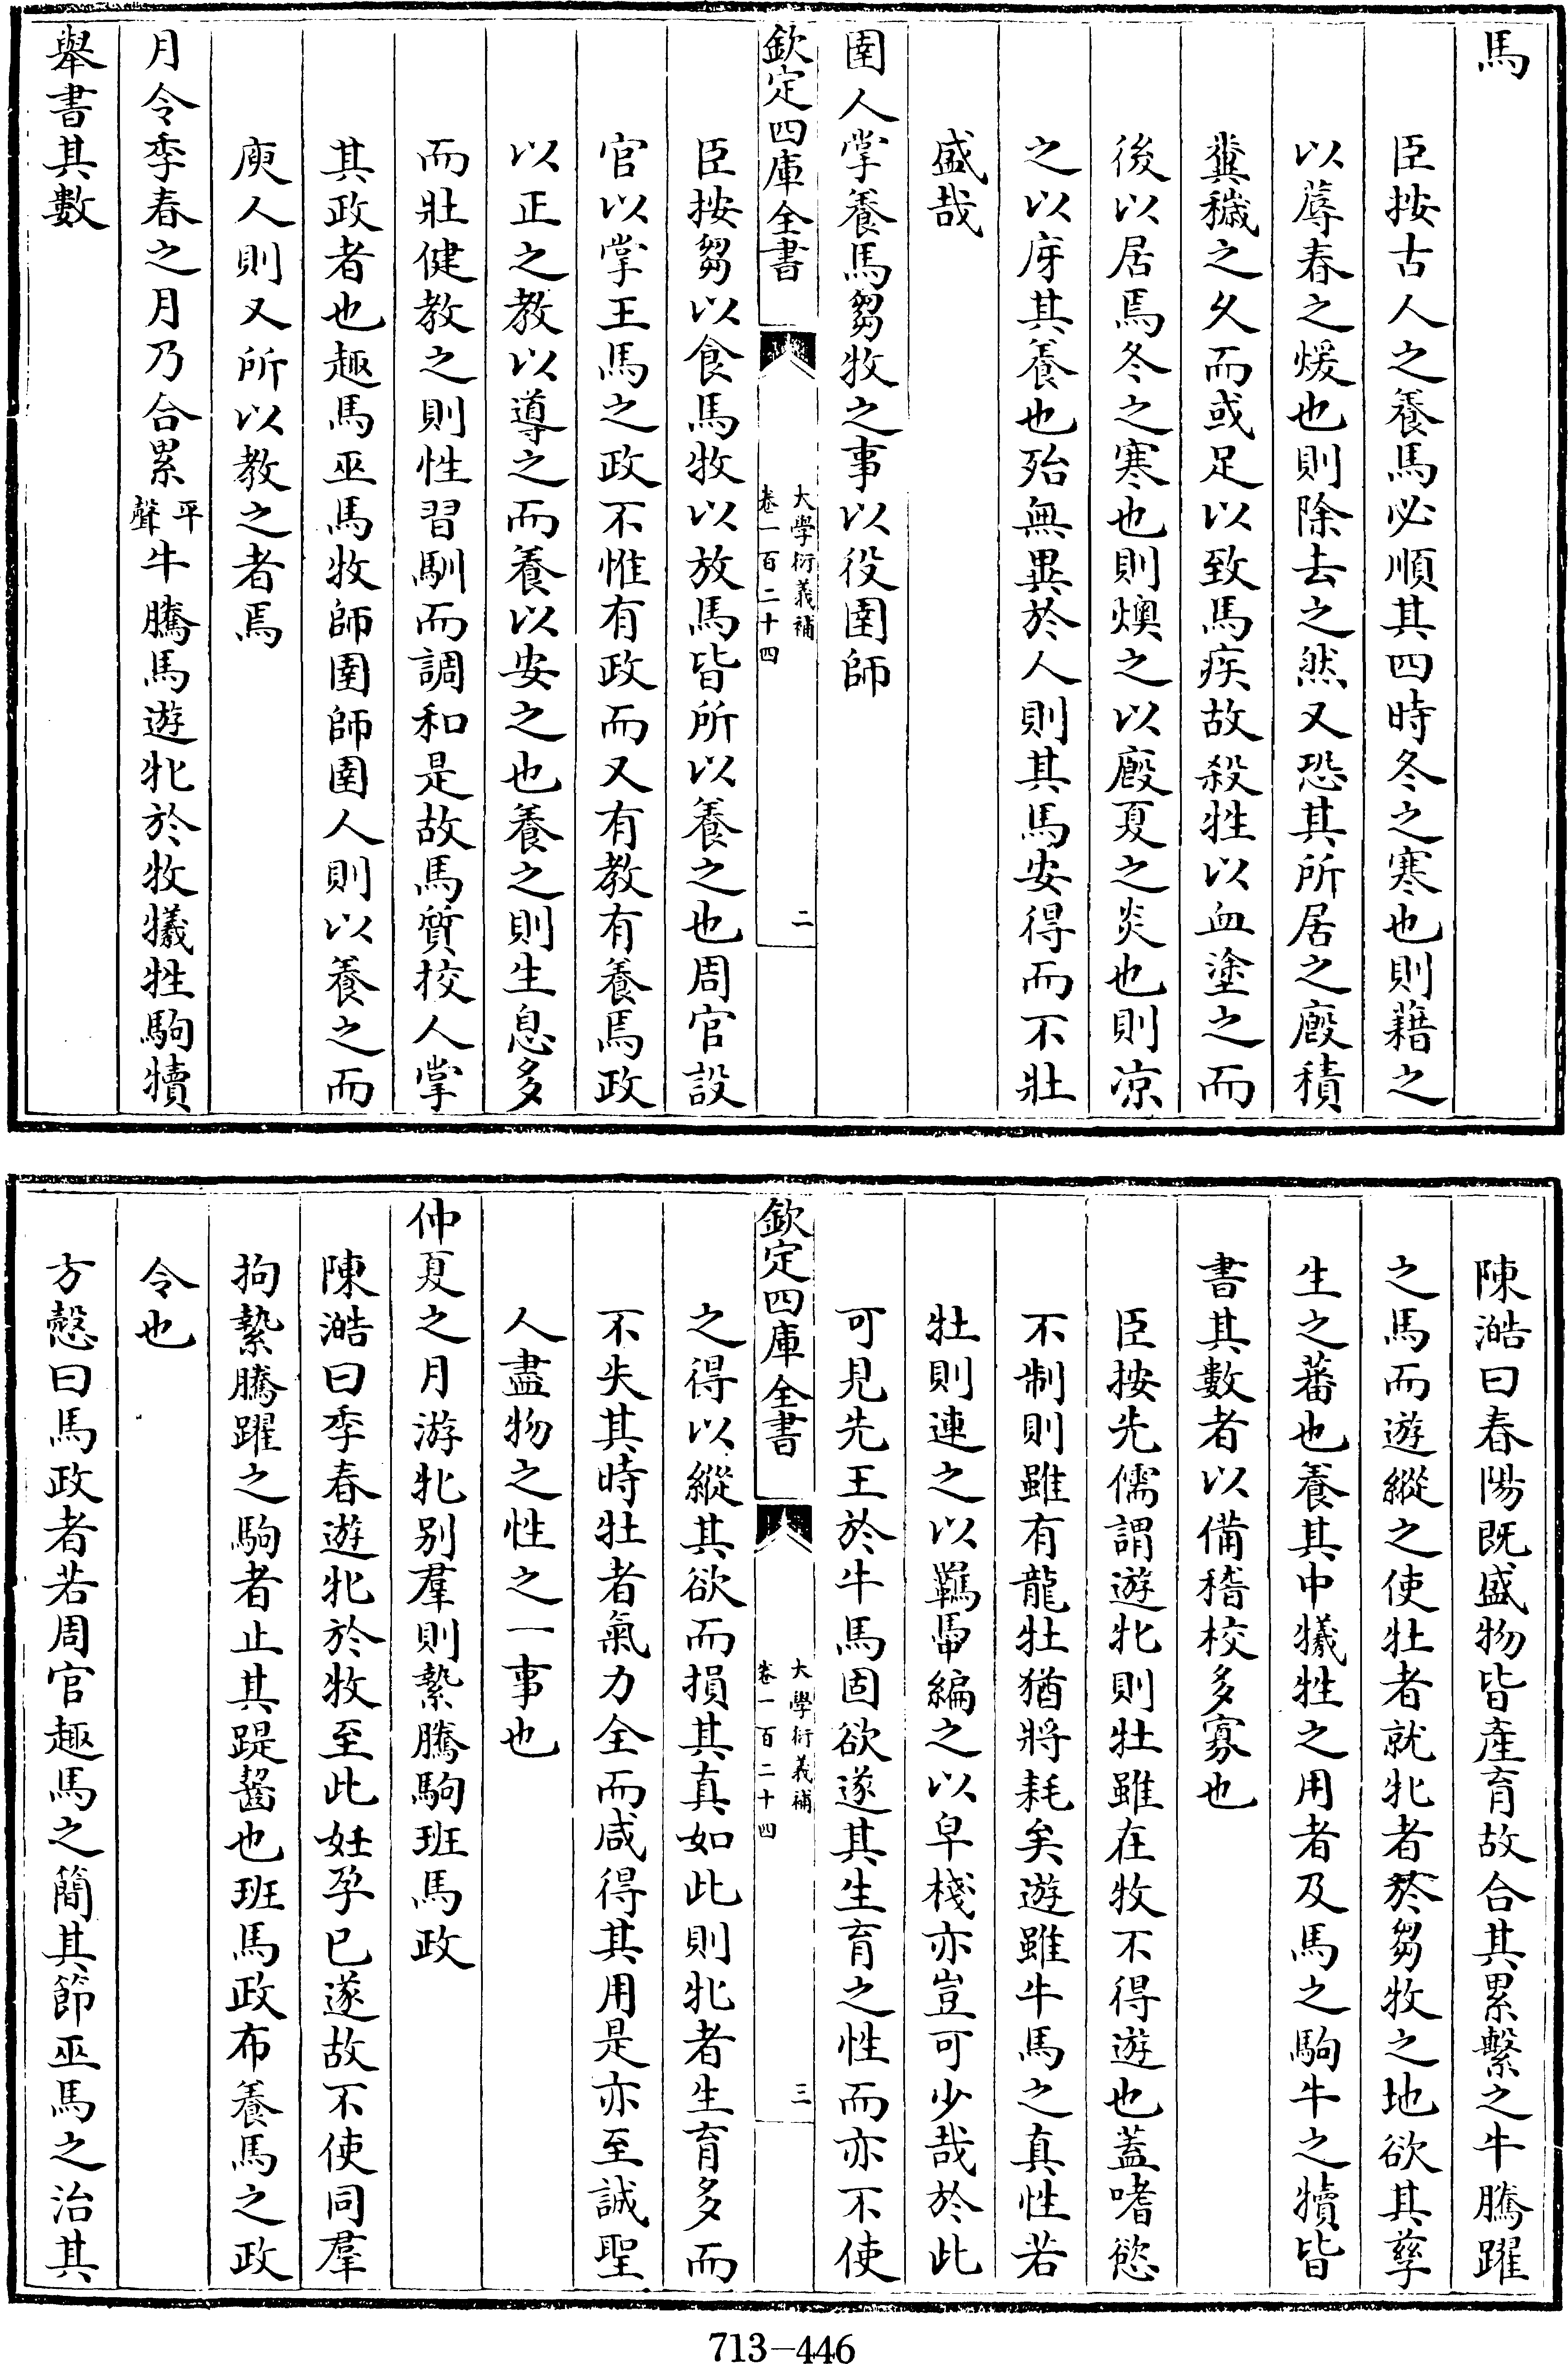 馬
臣按古人之養馬必順其四時冬之寒也則藉之
以蓐春之煖也則除去之然又恐其所居之廐積
糞穢之久而或足以致馬疾故殺牲以血塗之而
後以居焉冬之寒也則燠之以廐夏之炎也則凉
之以庌其養也殆無異於人則其馬安得而不壯
盛哉
圉人掌養馬芻牧之事以役圉師
欽定四庫全書
大學衍義補
卷一百二十四
二
臣按芻以食馬牧以放馬皆所以養之也周官設
官以掌王馬之政不惟有政而又有教有養焉政
以正之教以導之而養以安之也養之則生息多
而壯健教之則性習馴而調和是故馬質校人掌
其政者也趣馬巫馬牧師圉師圉人則以養之而
庾人則又所以教之者焉
月令季春之月乃合累平聲牛騰馬遊牝於牧犧牲駒犢
舉書其數
陳澔曰春陽既盛物皆產育故合其累繫之牛騰躍
之馬而遊縱之使牡者就牝者於芻牧之地欲其孳
生之蕃也養其中犧牲之用者及馬之駒牛之犢皆
書其數者以備稽校多寡也
臣按先儒謂遊牝則牡雖在牧不得遊也蓋嗜慾
不制則雖有龍牡猶將耗矣遊雖牛馬之真性若
牡則連之以羈馽編之以皁棧亦豈可少哉於此
可見先王於牛馬固欲遂其生育之性而亦不使
欽定四庫全書
大學衍義補
卷一百二十四
三
之得以縱其欲而損其真如此則牝者生育多而
不失其時牡者氣力全而咸得其用是亦至誠聖
人盡物之性之一事也
仲夏之月游牝别羣則縶騰駒班馬政
陳澔曰季春遊牝於牧至此妊孕已遂故不使同羣
拘縶騰躍之駒者止其踶齧也班馬政布養馬之政
令也
方慤曰馬政者若周官趣馬之簡其節巫馬之治其
713-446